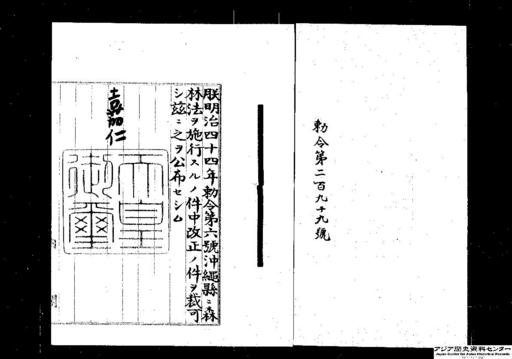 勅令第二百九十九號
朕明治四十四年勅令第六號沖繩縣ニ森
林法ヲ施行スルノ件中改正ノ件ヲ裁可
シ茲ニ之ヲ公布セシム
嘉仁
天皇
御璽
アジア歴史資料センター
Japan Center for Asian Historical Records